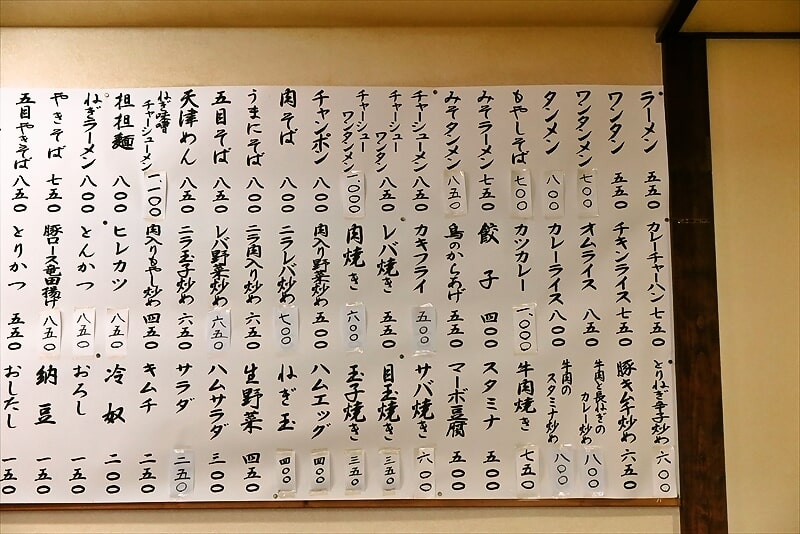 ラーメン 五五〇
ワンタン 五五〇
ワンタンメン 七〇〇
タンメン 八〇〇
もやしそば 七〇〇
みそラーメン 七五〇
みそタンメン 八五〇
チャーシューメン 八五〇
チャーシュー
ワンタン 八五〇
チャーシュー
ワンタンメン 一、〇〇〇
チャンポン 八〇〇
肉そば 八〇〇
うまにそば 八〇〇
五目そば 八五〇
天津めん 八五〇
ねぎ味噌
チャーシューメン 一、一〇〇
担担麺 八〇〇
ねぎラーメン 八〇〇
やきそば 七五〇
五目やきそば 八五〇
カレーチャーハン 七五〇
チキンライス 七五〇
オムライス 八五〇
カレーライス 八〇〇
カツカレー 一、〇〇〇
餃子 四〇〇
鳥のからあげ 五五〇
カキフライ 五〇〇
レバ焼き 五五〇
肉焼き 六〇〇
肉入り野菜炒め 五〇〇
ニラレバ炒め 七〇〇
ニラ肉入り炒め 六五〇
レバ野菜炒め 六五〇
ニラ玉子炒め 六五〇
肉入りもやし炒め 四五〇
ヒレカツ 八五〇
とんかつ 八五〇
豚ロース竜田揚げ 八五〇
とりかつ 五五〇
とりねぎ辛子炒め 六〇〇
豚キムチ炒め 六五〇
牛肉と長ねぎの
カレー炒め 八〇〇
牛肉の
スタミナ炒め 八〇〇
牛肉焼き 七五〇
スタミナ 五〇〇
マーボ豆腐 五〇〇
サバ焼き 六〇〇
目玉焼き 三五〇
玉子焼き 三五〇
ハムエッグ 四〇〇
ねぎ玉 四〇〇
生野菜 四五〇
ハムサラダ 三〇〇
サラダ 二五〇
キムチ 二五〇
冷奴 二〇〇
おろし 一五〇
納豆 一五〇
おしたし 一五〇